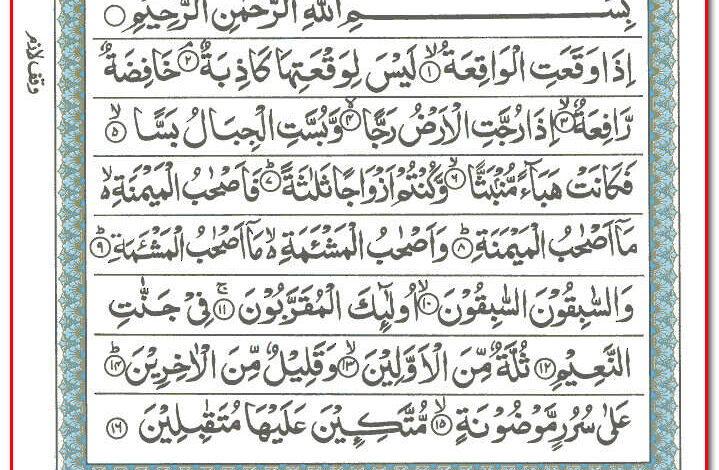 بِسْـــــمِ اللهِ الرَّحْمٰنِ الرَّحِيْمِ ○
اِذَا وَقَعَتِ الْوَاقِعَةُ ۙ﴿۱﴾ لَيْسَ لِوَقْعَتِهَا كَاذِبَةٌ ۘ﴿۲﴾ خَافِضَةٌ
رَّافِعَةٌ ۙ﴿۳﴾ اِذَا رُجَّتِ الْاَرْضُ رَجًّا ۙ﴿۴﴾ وَّبُسَّتِ الْجِبَالُ بَسًّا ۙ﴿۵﴾
فَكَانَتْ هَبَآءً مُّنْۢبَثًّا ۙ﴿۶﴾ وَّكُنْتُمْ اَزْوَاجًا ثَلٰثَةً ؕ﴿۷﴾ فَاَصْحٰبُ الْمَيْمَنَةِ ۙ
مَاۤ اَصْحٰبُ الْمَيْمَنَةِ ؕ﴿۸﴾ وَاَصْحٰبُ الْمَشْـَٔمَةِ ۙ مَاۤ اَصْحٰبُ الْمَشْـَٔمَةِ ؕ﴿۹﴾
وَالسّٰبِقُوْنَ السّٰبِقُوْنَ ۙ﴿۱۰﴾ اُولٰٓئِكَ الْمُقَرَّبُوْنَ ۚ﴿۱۱﴾ فِيْ جَنّٰتِ
النَّعِيْمِ ﴿۱۲﴾ ثُلَّةٌ مِّنَ الْاَوَّلِيْنَ ۙ﴿۱۳﴾ وَقَلِيْلٌ مِّنَ الْاٰخِرِيْنَ ؕ﴿۱۴﴾
عَلٰى سُرُرٍ مَّوْضُوْنَةٍ ۙ﴿۱۵﴾ مُّتَّكِـِٕيْنَ عَلَيْهَا مُتَقٰبِلِيْنَ ﴿۱۶﴾
وقف لازم